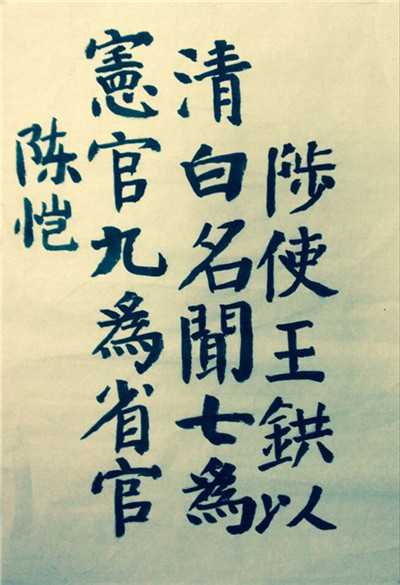 陟使王鉷以
清白名聞七爲
憲官九爲省官
陈恺